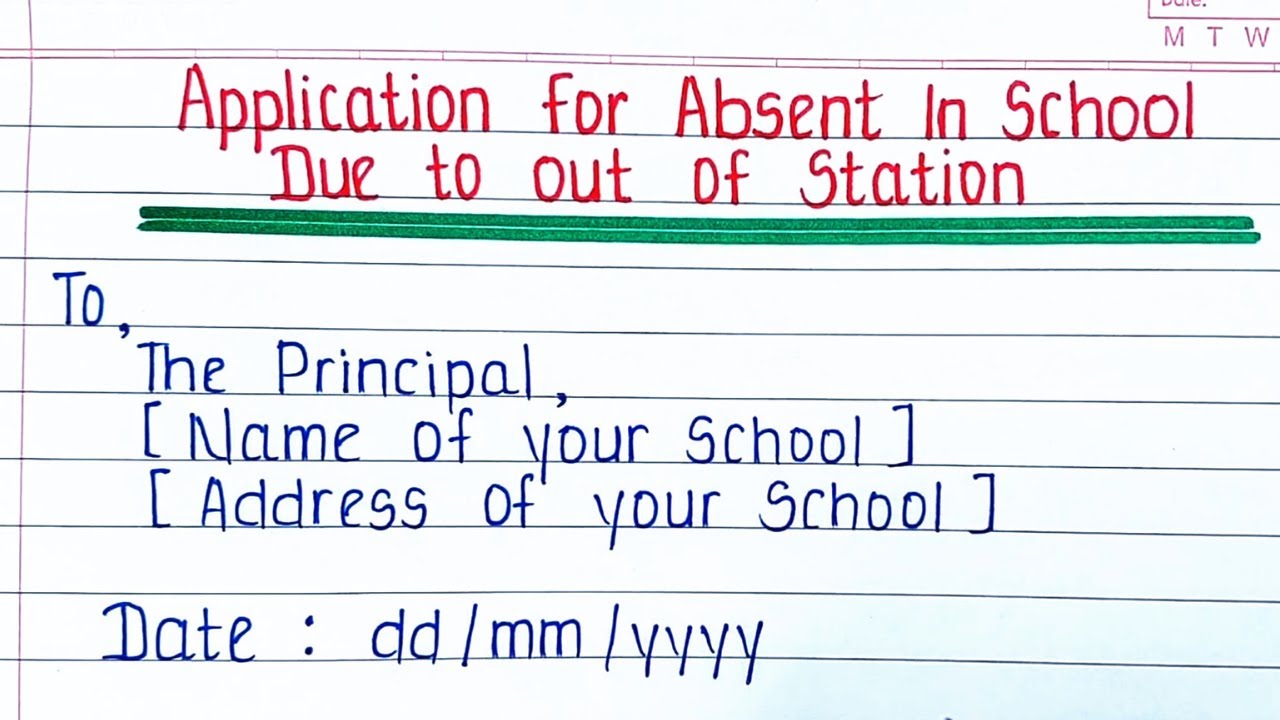 Date:
M T W
Application for Absent In School
Due to out of Station
To,
The Principal,
[ Name of your School ]
[ Address of your School ]
Date : dd/mm/yyyy